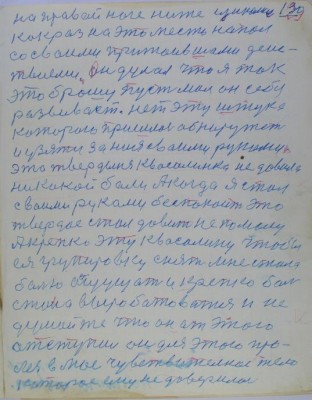 на правай ноге ниже
139
как раз на это месть напал
со своими притоившими дейс-
твиеми, Он думал что я так
это брошу пуст мол он себу
развивает. нет эту штуку
которого пришлос обнаружит
и узяти за ния своими руками,
эта твердения квасолинка не давала
никакой боли Акогда я стал
своими руками беспокоит Это
твердое стал давит не помогу
Акрепко эту квасолину чтобы
ея групировку снят мне стала
болю слушат и крепко бол
стала выработоватся и не
думайте что он от этого
отступил он для этого про-
лез в мое чувствительное тело
которое ему не доверилос